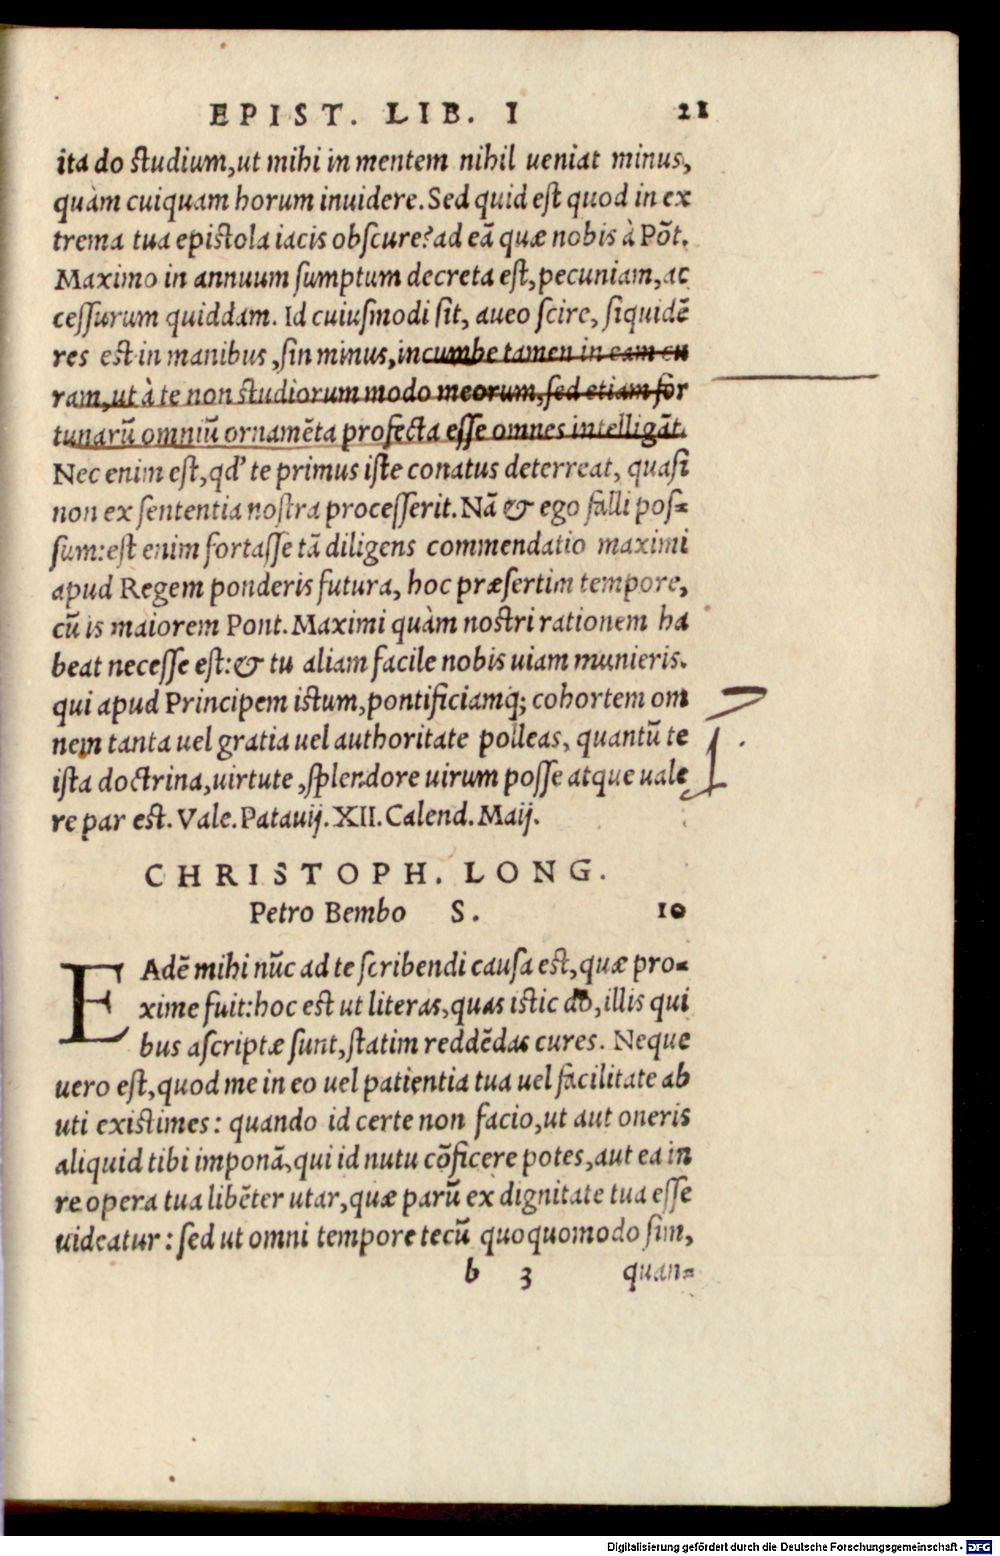 EPIST. LIB. I 21
ita do studium, ut mihi in mentem nihil ueniat minus,
quàm cuiquam horum inuidere. Sed quid est quod in ex
trema tua epistola iacis obscure? ad eā quæ nobis à Pōt.
Maximo in annuum sumptum decreta est, pecuniam, ac
cessurum quiddam. Id cuiusmodi sit, aueo scire, siquidē
res est in manibus, sin minus, incumbe tamen in eam cu
ram, ut à te non studiorum modo meorum, sed etiam for
tunarū omniū ornamēta profecta esse omnes intelligāt.
Nec enim est, qd' te primus iste conatus deterreat, quasi
non ex sententia nostra processerit. Nā & ego falli pos-
sum: est enim fortasse tā diligens commendatio maximi
apud Regem ponderis futura, hoc præsertim tempore,
cū is maiorem Pont. Maximi quàm nostri rationem ha
beat necesse est: & tu aliam facile nobis uiam munieris.
qui apud Principem istum, pontificiamq; cohortem om
nem tanta uel gratia uel authoritate polleas, quantū te
ista doctrina, uirtute, splendore uirum posse atque uale
re par est. Vale. Patauij. XII. Calend. Maij.
CHRISTOPH. LONG.
Petro Bembo S. 10
EAdē mihi nūc ad te scribendi causa est, quæ pro-
xime fuit: hoc est ut literas, quas istic do, illis qui
bus ascriptæ sunt, statim reddēdas cures. Neque
uero est, quod me in eo uel patientia tua uel facilitate ab
uti existimes: quando id certe non facio, ut aut oneris
aliquid tibi imponā, qui id nutu cōficere potes, aut ea in
re opera tua libēter utar, quæ parū ex dignitate tua esse
uideatur: sed ut omni tempore tecū quoquomodo sim,
b 3 quan-
Digitalisierung gefördert durch die Deutsche Forschungsgemeinschaft - DFG